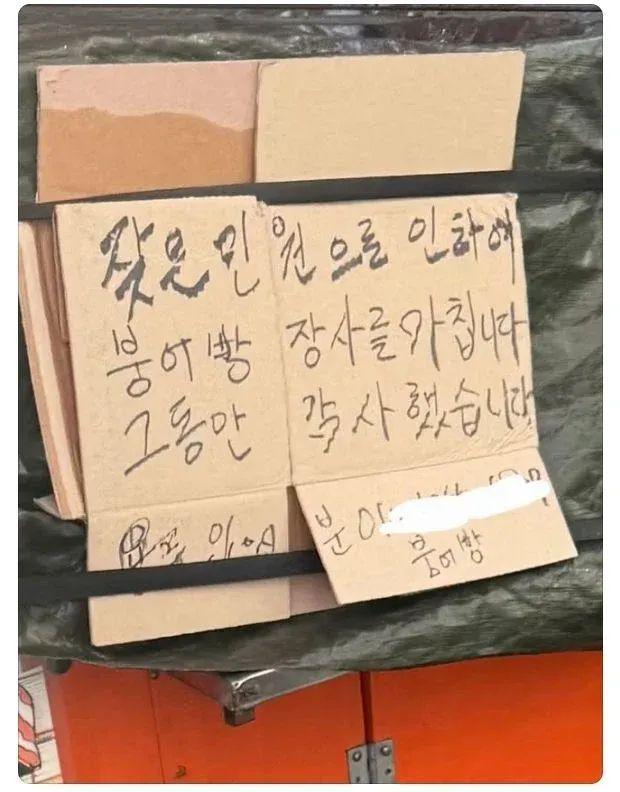 잦은 민원으를 인하여
붕어빵 장사를 마칩니다
그동안 각사 했습니다
붕어빵